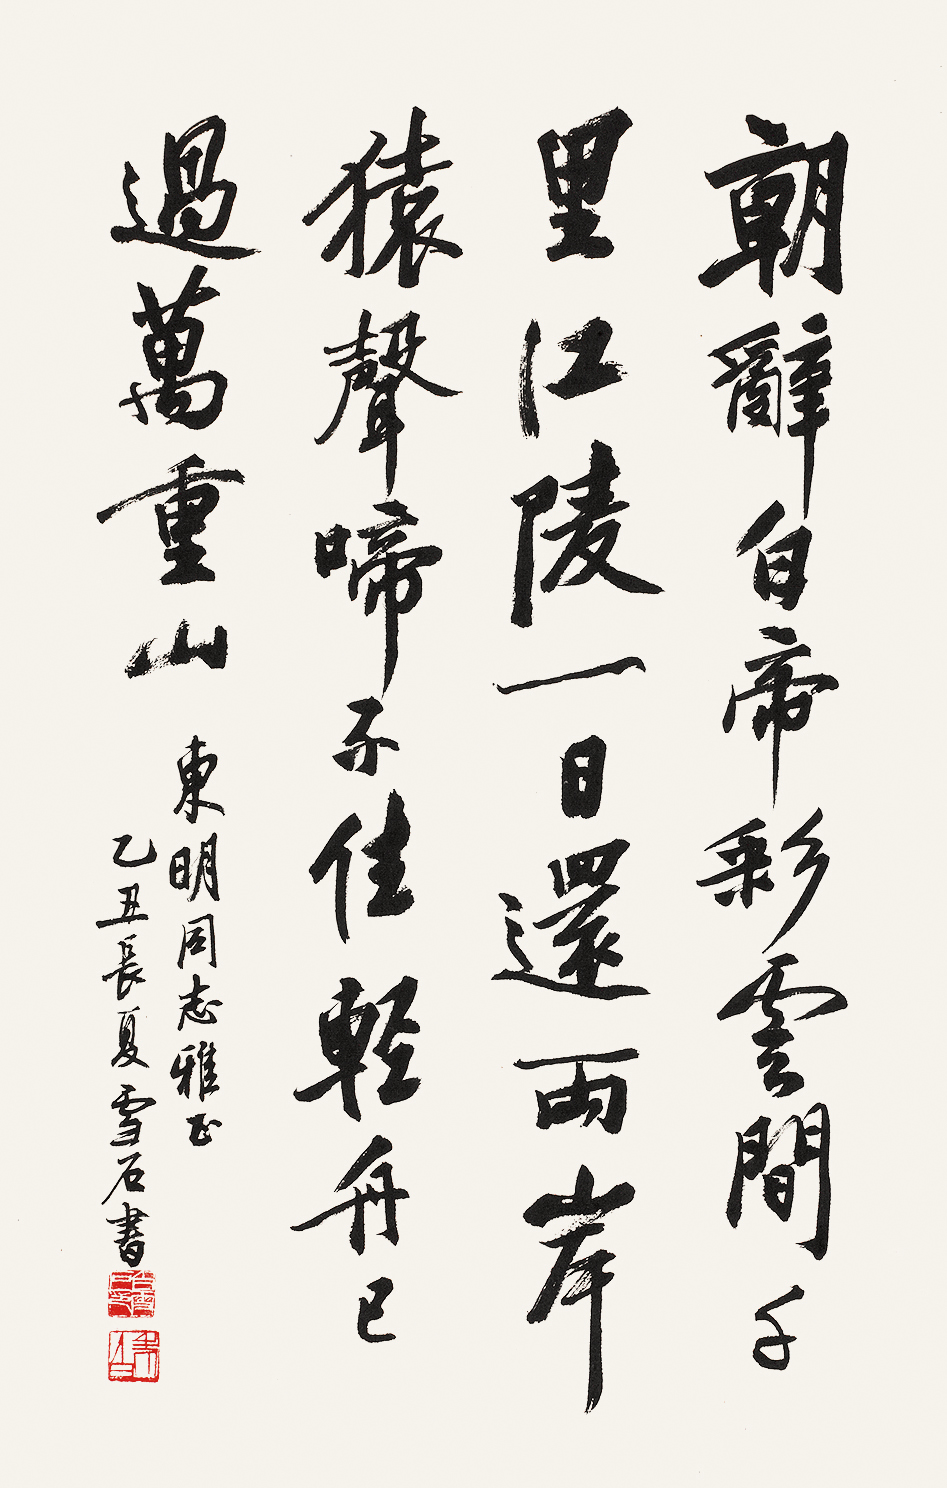 朝辭白帝彩雲間千
里江陵一日還兩岸
猿聲啼不住輕舟已
過萬重山
東明同志雅正
乙丑長夏雪石書